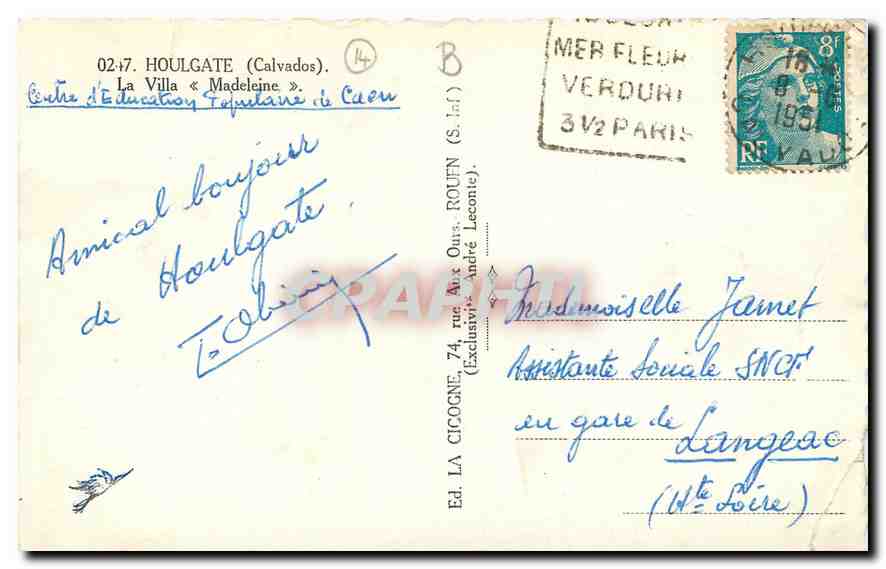 02-17. HOULGATE (Calvados).
La Villa « Madeleine ».
Centre d'Education Populaire de Caen
14
B
Amical bonjour
de Houlgate.
Ed. LA CICOGNE, 74, rue Aux Ours. ROUEN (S. Inf)
(Exclusivité André Leconte).
MER FLEUR
VERDURE
3 1/2 PARIS
8F
POSTES
RF
18
8
1951
CPAPHIL
Mademoiselle Jamet
Assistante Sociale SNCF
en gare de
Langeac
(Hte Loire)